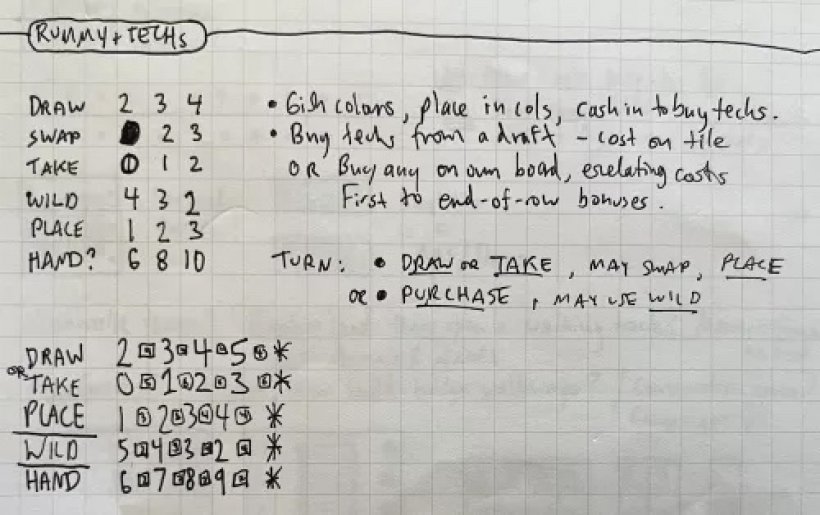 RUMMY + TECHS
DRAW 2 3 4
SWAP 2 3
TAKE 0 1 2
WILD 4 3 2
PLACE 1 2 3
HAND? 6 8 10
• 6ish colours, place in cols, cash in to buy techs.
• Buy techs from a draft – cost on tile
OR Buy any on own board, esclating costs
First to end-of-row bonuses.
TURN: • DRAW OR TAKE, MAY SWAP, PLACE
OR • PURCHASE, MAY USE WILD
DRAW 2 3 4 5 *
OR TAKE 0 1 2 3 *
PLACE 1 2 3 4 *
WILD 5 4 3 2 *
HAND 6 7 8 9 *